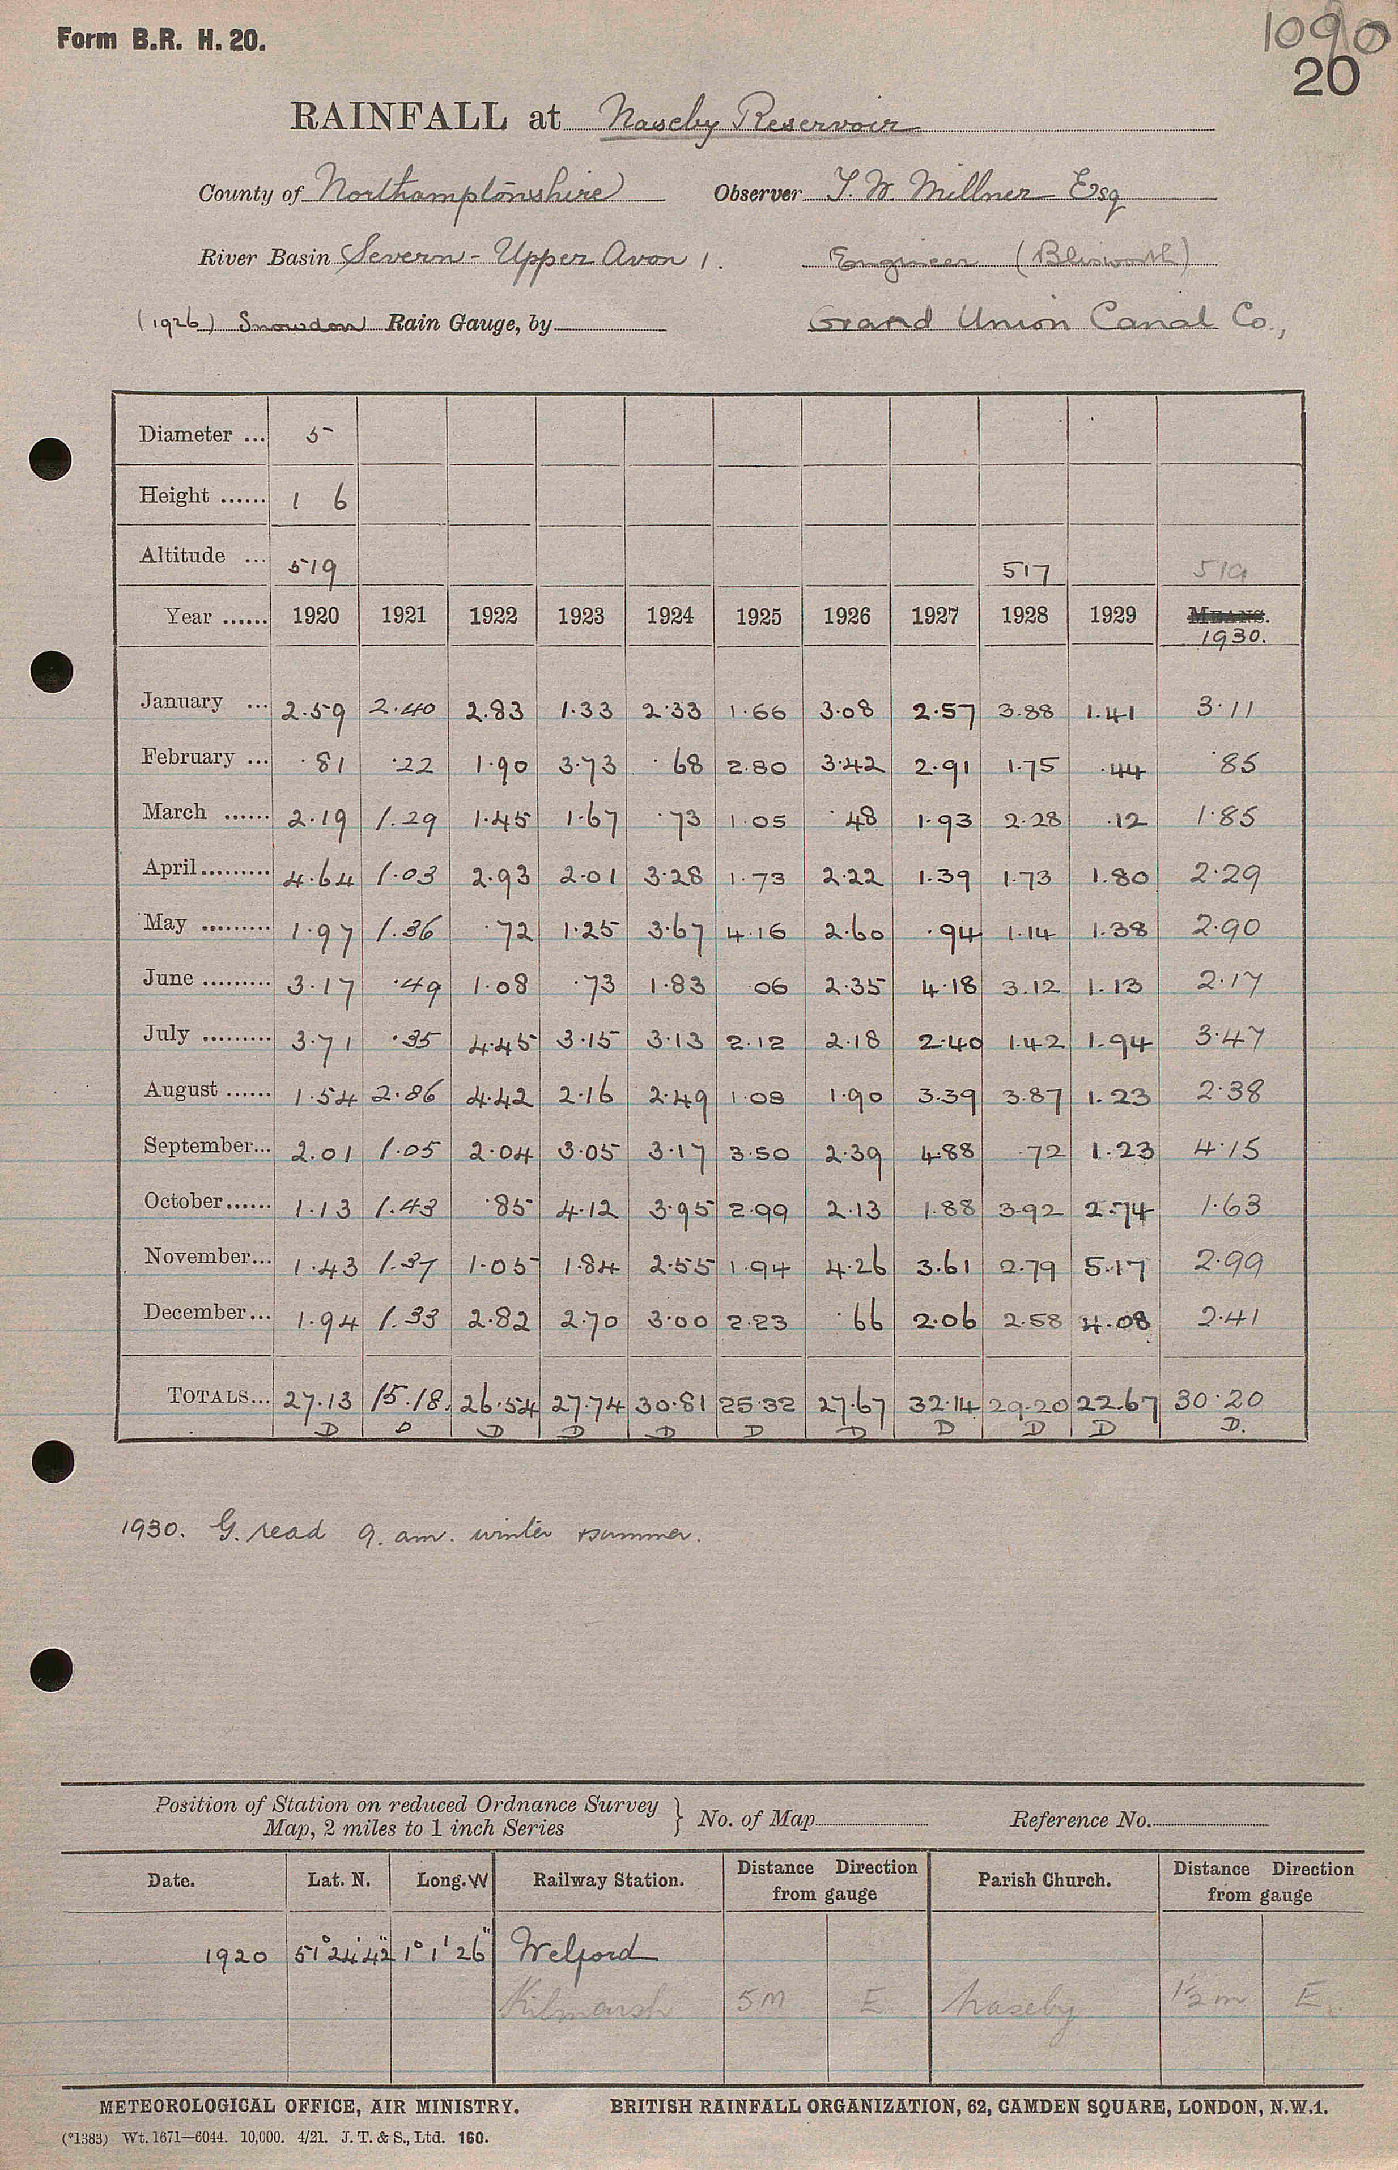 Form B.R. H. 20.
1090
20
RAINFALL at Naseby Reservoir
County of Northamptonshire Observer T. W. Millner Esq
River Basin Severn - Upper Avon 1. Engineer (Blisworth)
(1926) Snowdon Rain Gauge, by Grand Union Canal Co.,
Diameter ... 5
Height ...... 1 6
Altitude ... 519 517 519
Year ...... 1920 1921 1922 1923 1924 1925 1926 1927 1928 1929 MEANS. 1930.
January ... 2.59 2.40 2.83 1.33 2.33 1.66 3.08 2.57 3.88 1.41 3.11
February ... .81 .22 1.90 3.73 .68 2.80 3.42 2.91 1.75 .44 .85
March ...... 2.19 1.29 1.45 1.67 .73 1.05 .48 1.93 2.28 .12 1.85
April ......... 4.64 1.03 2.93 2.01 3.28 1.73 2.22 1.39 1.73 1.80 2.29
May ......... 1.97 1.36 .72 1.25 3.67 4.16 2.60 .94 1.14 1.38 2.90
June ......... 3.17 .49 1.08 .73 1.83 06 2.35 4.18 3.12 1.13 2.17
July ......... 3.71 .35 4.45 3.15 3.13 2.12 2.18 2.40 1.42 1.94 3.47
August ...... 1.54 2.86 4.42 2.16 2.49 1.08 1.90 3.39 3.87 1.23 2.38
September... 2.01 1.05 2.04 3.05 3.17 3.50 2.39 4.88 .72 1.23 4.15
October...... 1.13 1.43 .85 4.12 3.95 2.99 2.13 1.88 3.92 2.74 1.63
November... 1.43 1.37 1.05 1.84 2.55 1.94 4.26 3.61 2.79 5.17 2.99
December... 1.94 1.33 2.82 2.70 3.00 2.23 .66 2.06 2.58 4.08 2.41
TOTALS... 27.13 15.18. 26.54 27.74 30.81 25.32 27.67 32.14 29.20 22.67 30.20
D D D D D D D D D D D.
1930. G. read 9. am. winter + summer.
Position of Station on reduced Ordnance Survey Map, 2 miles to 1 inch Series } No. of Map Reference No.
Date. Lat. N. Long. W Railway Station. Distance Direction from gauge Parish Church. Distance Direction from gauge
1920 51° 24' 42" 1° 1' 26" Welford
Kilmarsh 5 M E Naseby 1½ m E.
METEOROLOGICAL OFFICE, AIR MINISTRY. BRITISH RAINFALL ORGANIZATION, 62, CAMDEN SQUARE, LONDON, N.W.1.
(*1383) Wt. 1671—6044. 10,000. 4/21. J. T. & S., Ltd. 160.